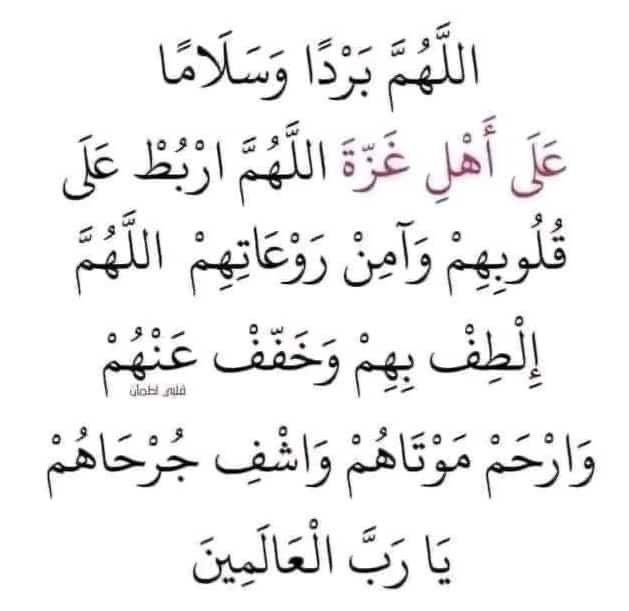 اللَّهُمَّ بَرْدًا وَسَلَامًا
عَلَى أَهْلِ غَزّةَ اللَّهُمَّ ارْبُطْ عَلَى
قُلُوبِهِمْ وَآمِنْ رَوْعَاتِهِمْ اللَّهُمَّ
إِلْطِفْ بِهِمْ وَخَفّفْ عَنْهُمْ
قلبي اطمان
وَارْحَمْ مَوْتَاهُمْ وَاشْفِ جُرْحَاهُمْ
يَا رَبَّ الْعَالَمِينَ